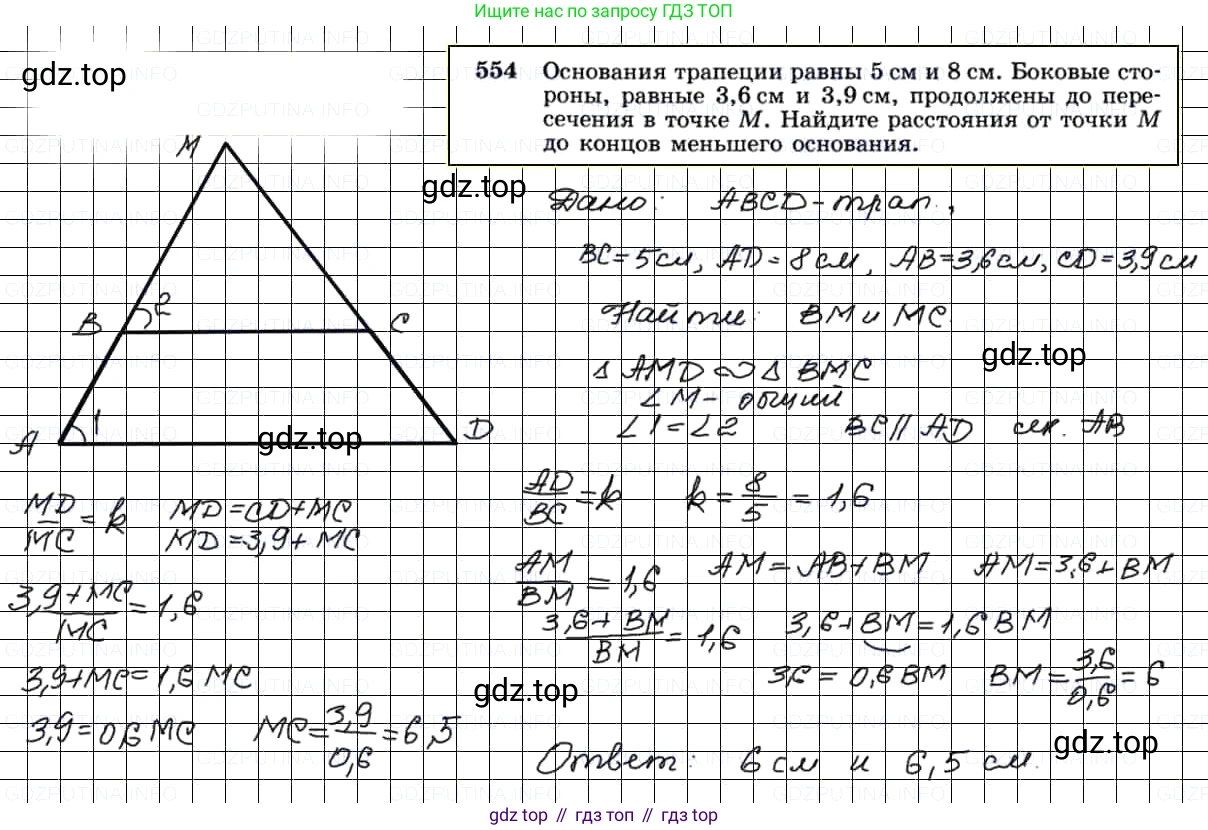 Ищите нас по запросу ГДЗ ТОП
gdz.top
554 Основания трапеции равны 5 см и 8 см. Боковые сто-
роны, равные 3,6 см и 3,9 см, продолжены до пере-
сечения в точке M. Найдите расстояния от точки M
до концов меньшего основания.
M
gdz.top
Дано: ABCD - трап.,
BC = 5 см, AD = 8 см, AB = 3,6 см, CD = 3,9 см
B 2 C
Найти: BM и MC.
gdz.top
△ AMD ∾ △ BMC
∠ M - общий
∠1 = ∠2 BC || AD сек. AB
A 1 D
gdz.top
AD/BC = k k = 8/5 = 1,6
AM/BM = 1,6 AM = AB + BM AM = 3,6 + BM
3,6 + BM/BM = 1,6 3,6 + BM = 1,6 BM
3,6 = 0,6 BM BM = 3,6/0,6 = 6
MD/MC = k MD = CD + MC
MD = 3,9 + MC
3,9 + MC/MC = 1,6
3,9 + MC = 1,6 MC
gdz.top
3,9 = 0,6 MC MC = 3,9/0,6 = 6,5
gdz.top
Ответ: 6 см и 6,5 см.
gdz топ // гдз топ // gdz top